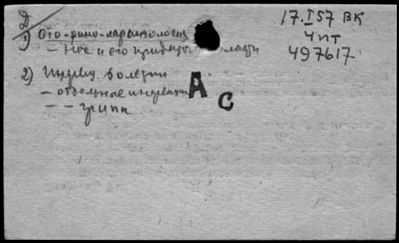 2
1) Ото-рино-ларингология
— Нос и его придаточ
2) болезни
— отдельные инфекции
— — грипп
А
С
17.I 57 ВК
Чпт
497617